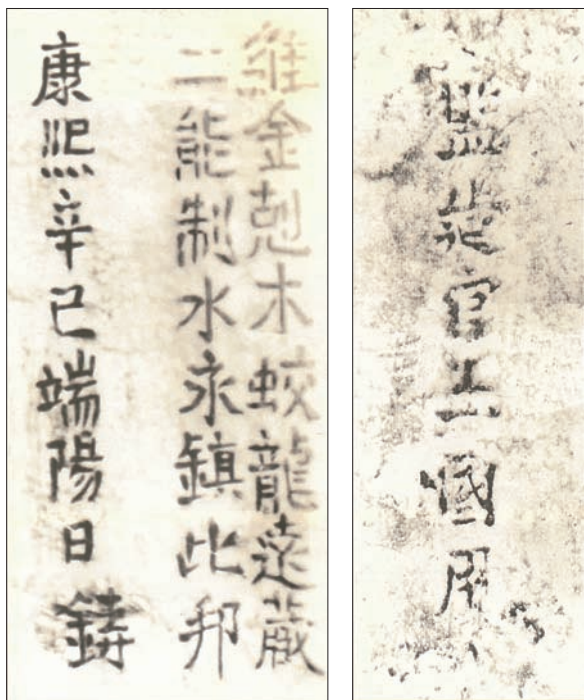 維金剋木蛟龍遠藏
二能制水永鎮此邦
康熙辛巳端陽日鑄
監造官王國用